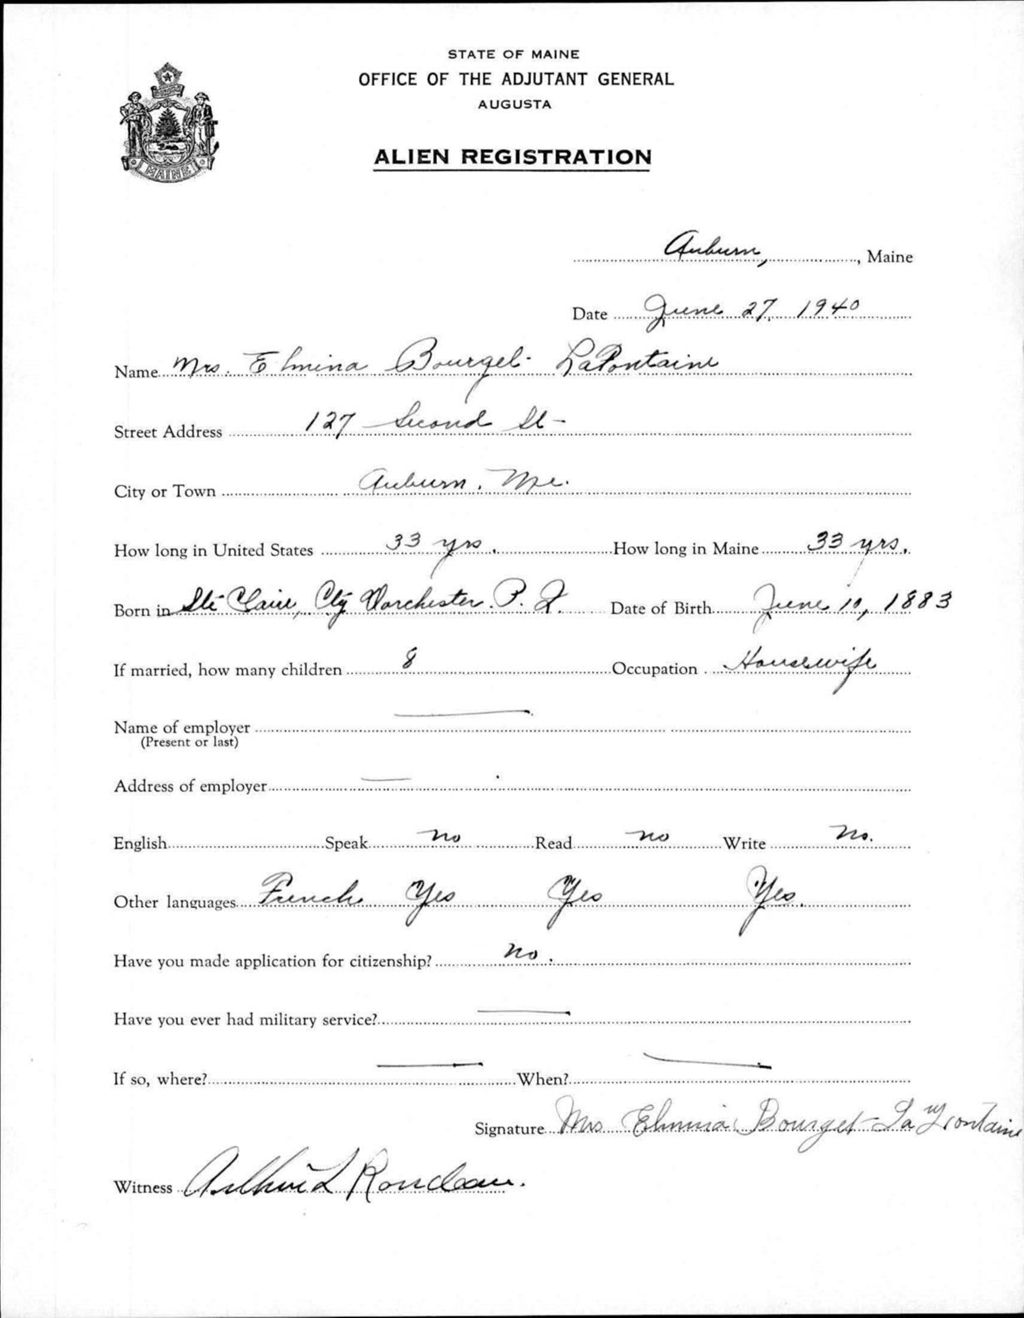 STATE OF MAINE
OFFICE OF THE ADJUTANT GENERAL
AUGUSTA
ALIEN REGISTRATION
MAINE
Auburn, , Maine
Date June 27, 1940
Name Mrs. Elmina Bourget- LaFontaine
Street Address 127 Second St-
City or Town Auburn, Me.
How long in United States 33 yrs. How long in Maine 33 yrs.
Born in Ste Claire, Cty Dorchester P. Q. Date of Birth June 10, 1883
If married, how many children 8 Occupation Housewife
Name of employer
(Present or last)
Address of employer
English Speak no Read no Write No.
Other languages French Yes Yes Yes.
Have you made application for citizenship? No.
Have you ever had military service?
If so, where? When?
Signature Mrs Elmina Bourget-La Fontaine
Witness Arthur L Rondeau.